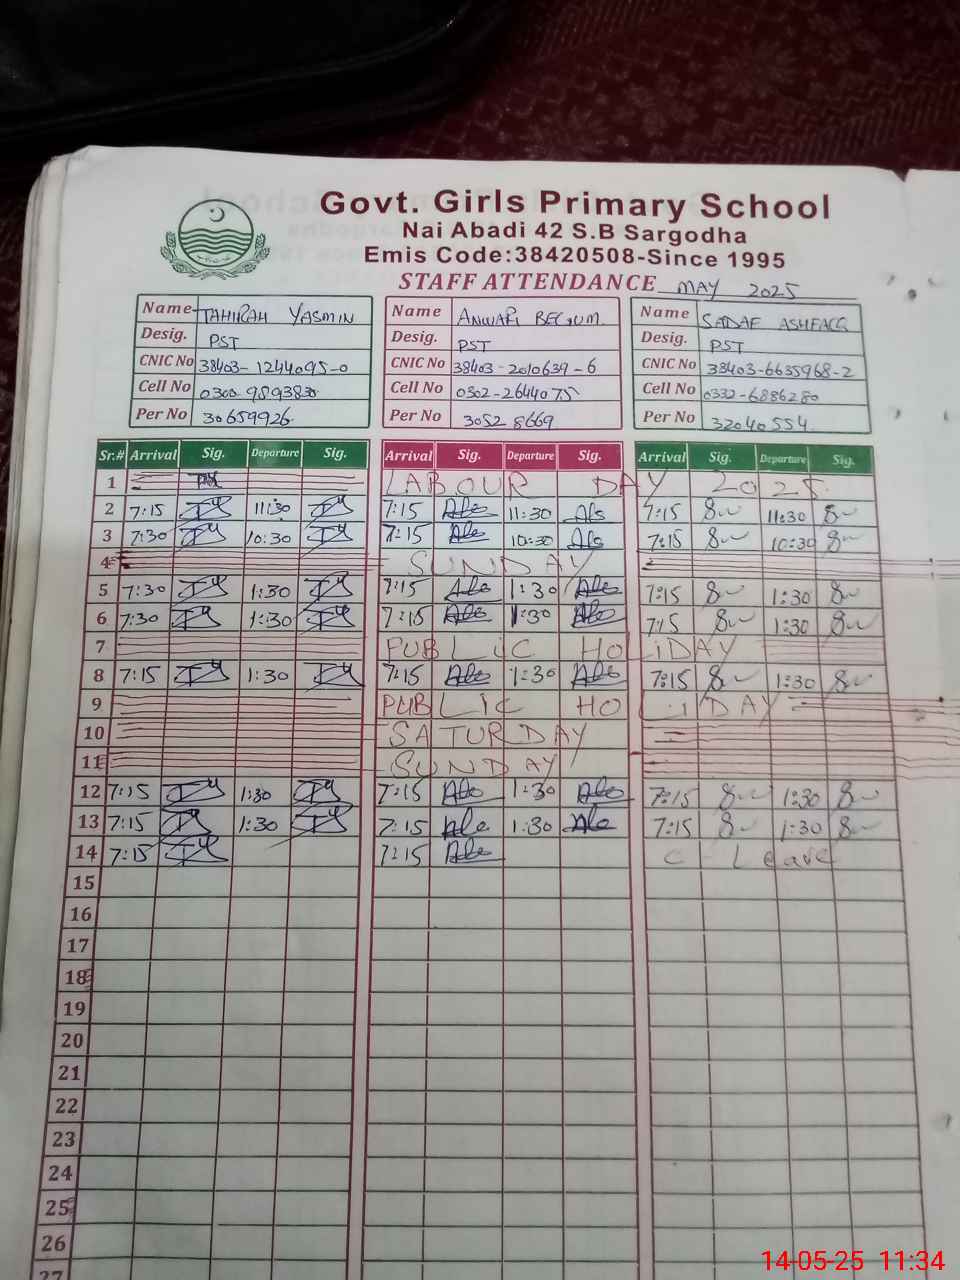 Govt. Girls Primary School
Nai Abadi 42 S.B Sargodha
Emis Code:38420508-Since 1995
STAFF ATTENDANCE MAY 2025
Name TAHIRAH YASMIN Name ANWARI BEGUM. Name SADAF ASHFAQ
Desig. PST Desig. PST Desig. PST
CNIC No 38403-1244095-0 CNIC No 38403-2010639-6 CNIC No 38403-6635968-2
Cell No 0300 9893830 Cell No 0302-2644075 Cell No 0332-6886280
Per No 30659926 Per No 30528669 Per No 32040554
Sr.# Arrival Sig. Departure Sig. Arrival Sig. Departure Sig. Arrival Sig. Departure Sig.
1 LABOUR DAY 2025
2 7:15 11:30 7:15 11:30 7:15 11:30
3 7:30 10:30 7:15 10:30 7:15 10:30
4 SUNDAY
5 7:30 1:30 7:15 1:30 7:15 1:30
6 7:30 1:30 7:15 1:30 7:15 1:30
7 PUBLIC HOLIDAY
8 7:15 1:30 7:15 1:30 7:15 1:30
9 PUBLIC HOLIDAY
10 SATURDAY
11 SUNDAY
12 7:15 1:30 7:15 1:30 7:15 1:30
13 7:15 1:30 7:15 1:30 7:15 1:30
14 7:15 7:15 C-Leave
15
16
17
18
19
20
21
22
23
24
25
26
27
14-05-25 11:34